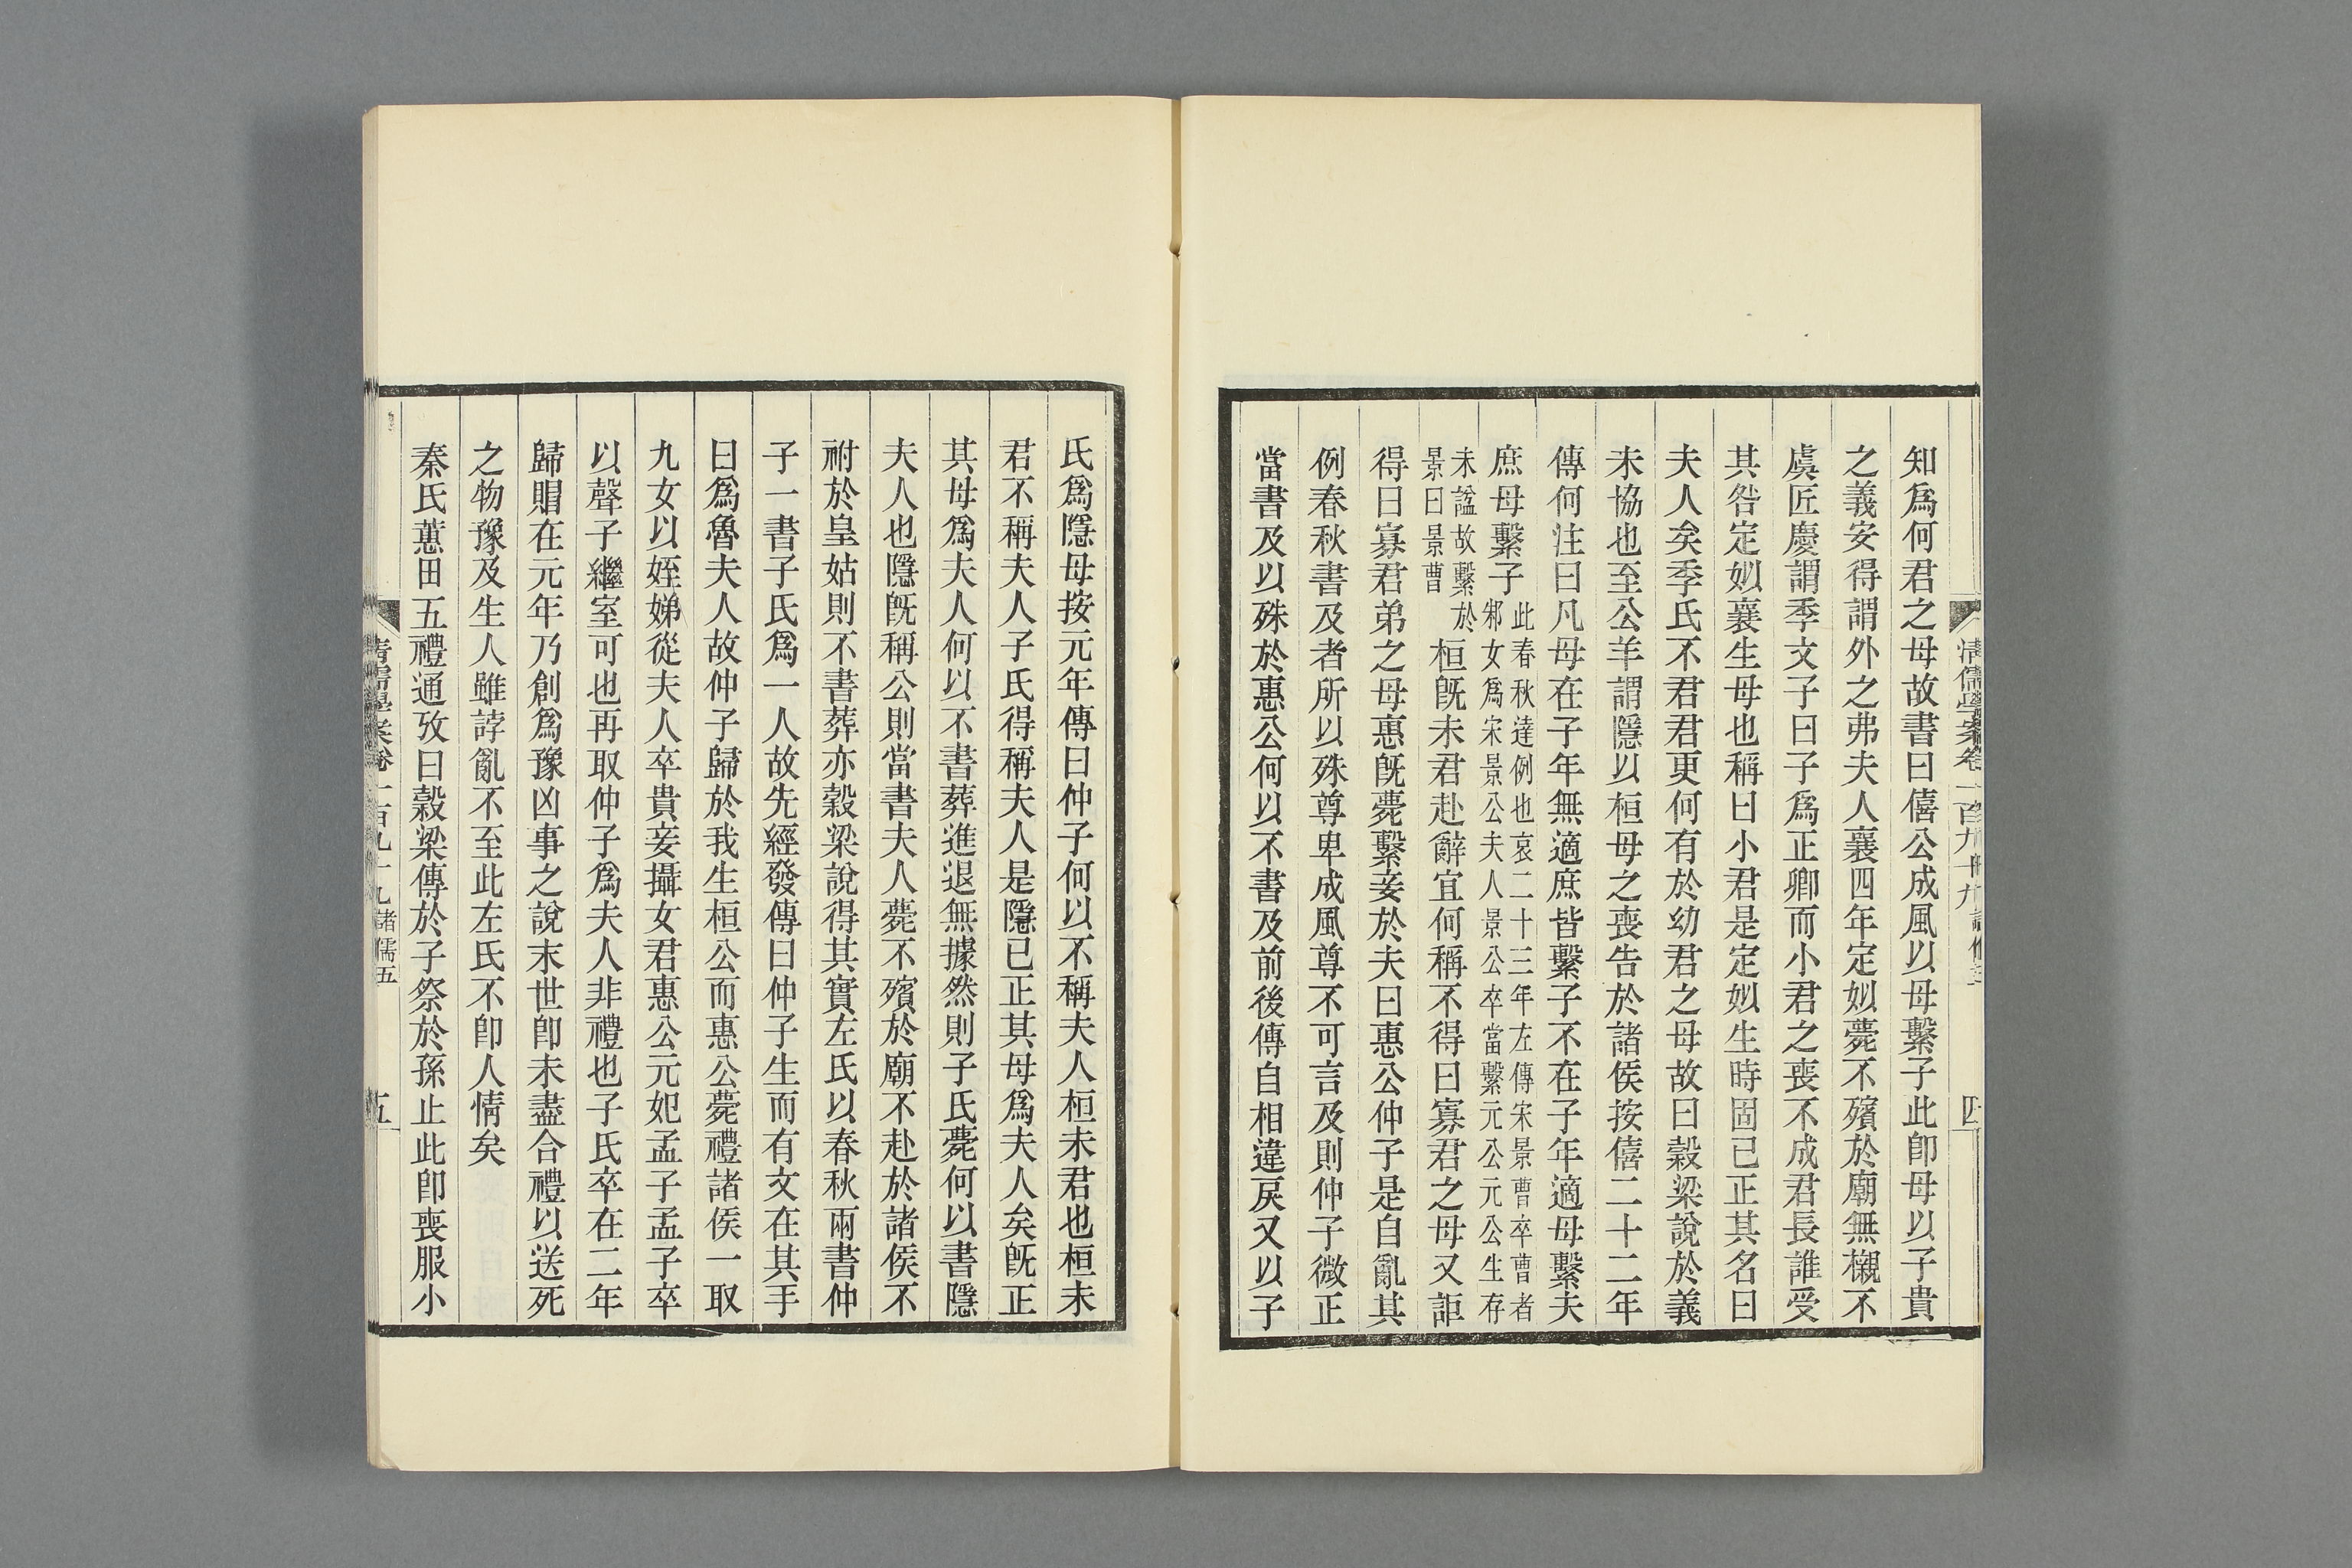 知爲何君之母故書曰僖公成風以母繫子此卽母以子貴
之義安得謂外之弗夫人襄四年定姒薨不殯於廟無櫬不
虞匠慶謂季文子曰子爲正卿而小君之喪不成君長誰受
其咎定姒襄生母也稱曰小君是定姒生時固已正其名曰
夫人矣季氏不君君更何有於幼君之母故曰穀梁說於義
未協也至公羊謂隱以桓母之喪告於諸侯按僖二十二年
傳何注曰凡母在子年無適庶皆繫子不在子年適母繫夫
庶母繫子此春秋達例也哀二十三年左傳宋景曹卒曹者邾女爲宋景公夫人景公卒當繫元公元公生存
未諡故繫於景曰景曹桓旣未君赴辭宜何稱不得曰寡君之母又詎
得曰寡君弟之母惠旣薨繫妾於夫曰惠公仲子是自亂其
例春秋書及者所以殊尊卑成風尊不可言及則仲子微正
當書及以殊於惠公何以不書及前後傳自相違戾又以子
清儒學案卷一百九十九
四
氏爲隱母按元年傳曰仲子何以不稱夫人桓未君也桓未
君不稱夫人子氏得稱夫人是隱已正其母爲夫人矣旣正
其母爲夫人何以不書葬進退無據然則子氏薨何以書隱
夫人也隱旣稱公則當書夫人薨不殯於廟不赴於諸侯不
祔於皇姑則不書葬亦穀梁說得其實左氏以春秋兩書仲
子一書子氏爲一人故先經發傳曰仲子生而有文在其手
曰爲魯夫人故仲子歸於我生桓公而惠公薨禮諸侯一取
九女以姪娣從夫人卒貴妾攝女君惠公元妃孟子孟子卒
以聲子繼室可也再取仲子爲夫人非禮也子氏卒在二年
歸賵在元年乃創爲豫凶事之說末世卽未盡合禮以送死
之物豫及生人雖誖亂不至此左氏不卽人情矣
秦氏蕙田五禮通攷曰穀梁傳於子祭於孫止此卽喪服小
清儒學案卷一百九十九 諸儒五
五